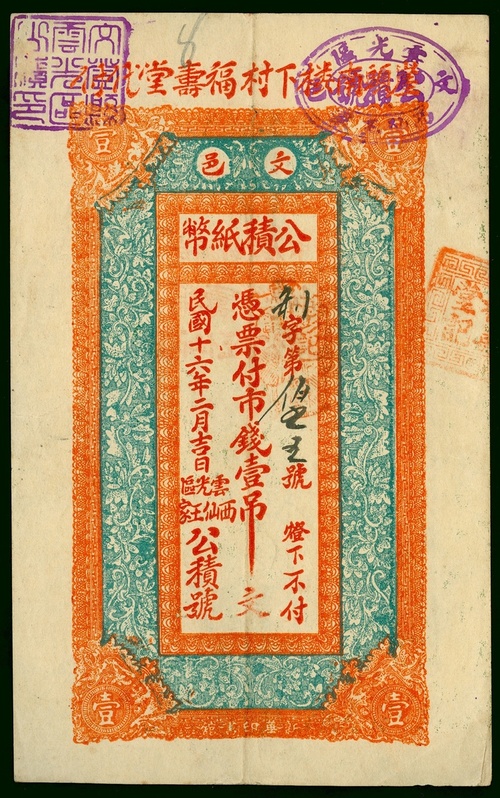 文登縣
雲光區
公積印
下村福壽堂
雲光區
壹
壹
文邑
公積紙幣
利字第伍 號 燈下不付
憑票付市錢壹吊文
民國十六年二月吉日
雲光區
西仙王家
公積號
壹
壹